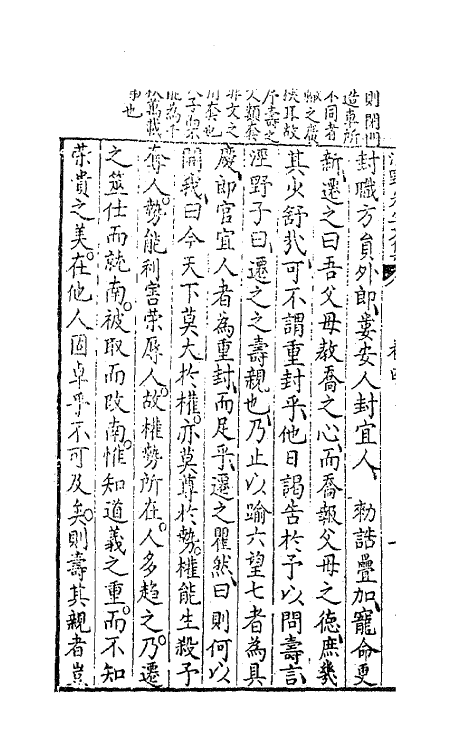 則閉門
造車所
不同者
之廣
耳故
序壽之
文類
非文之
也
為
也
封職方員外郎婁安人封宜人　勑誥疊加寵命更
新遷之曰吾父母教喬之心而喬報父母之德庶幾
其少舒哉可不謂重封乎他日謁告於予以問壽言
涇野子曰遷之之壽親也乃止以踰六望七者為具
慶郎官宜人者為重封而足乎遷之瞿然曰則何以
開我曰今天下莫大於權亦莫尊於勢權能生殺予
奪人勢能利害榮辱人故權勢所在人多趨之乃遷
之筮仕而就南被取而改南惟知道義之重而不知
榮貴之美在他人固卓乎不可及矣則壽其親者豈